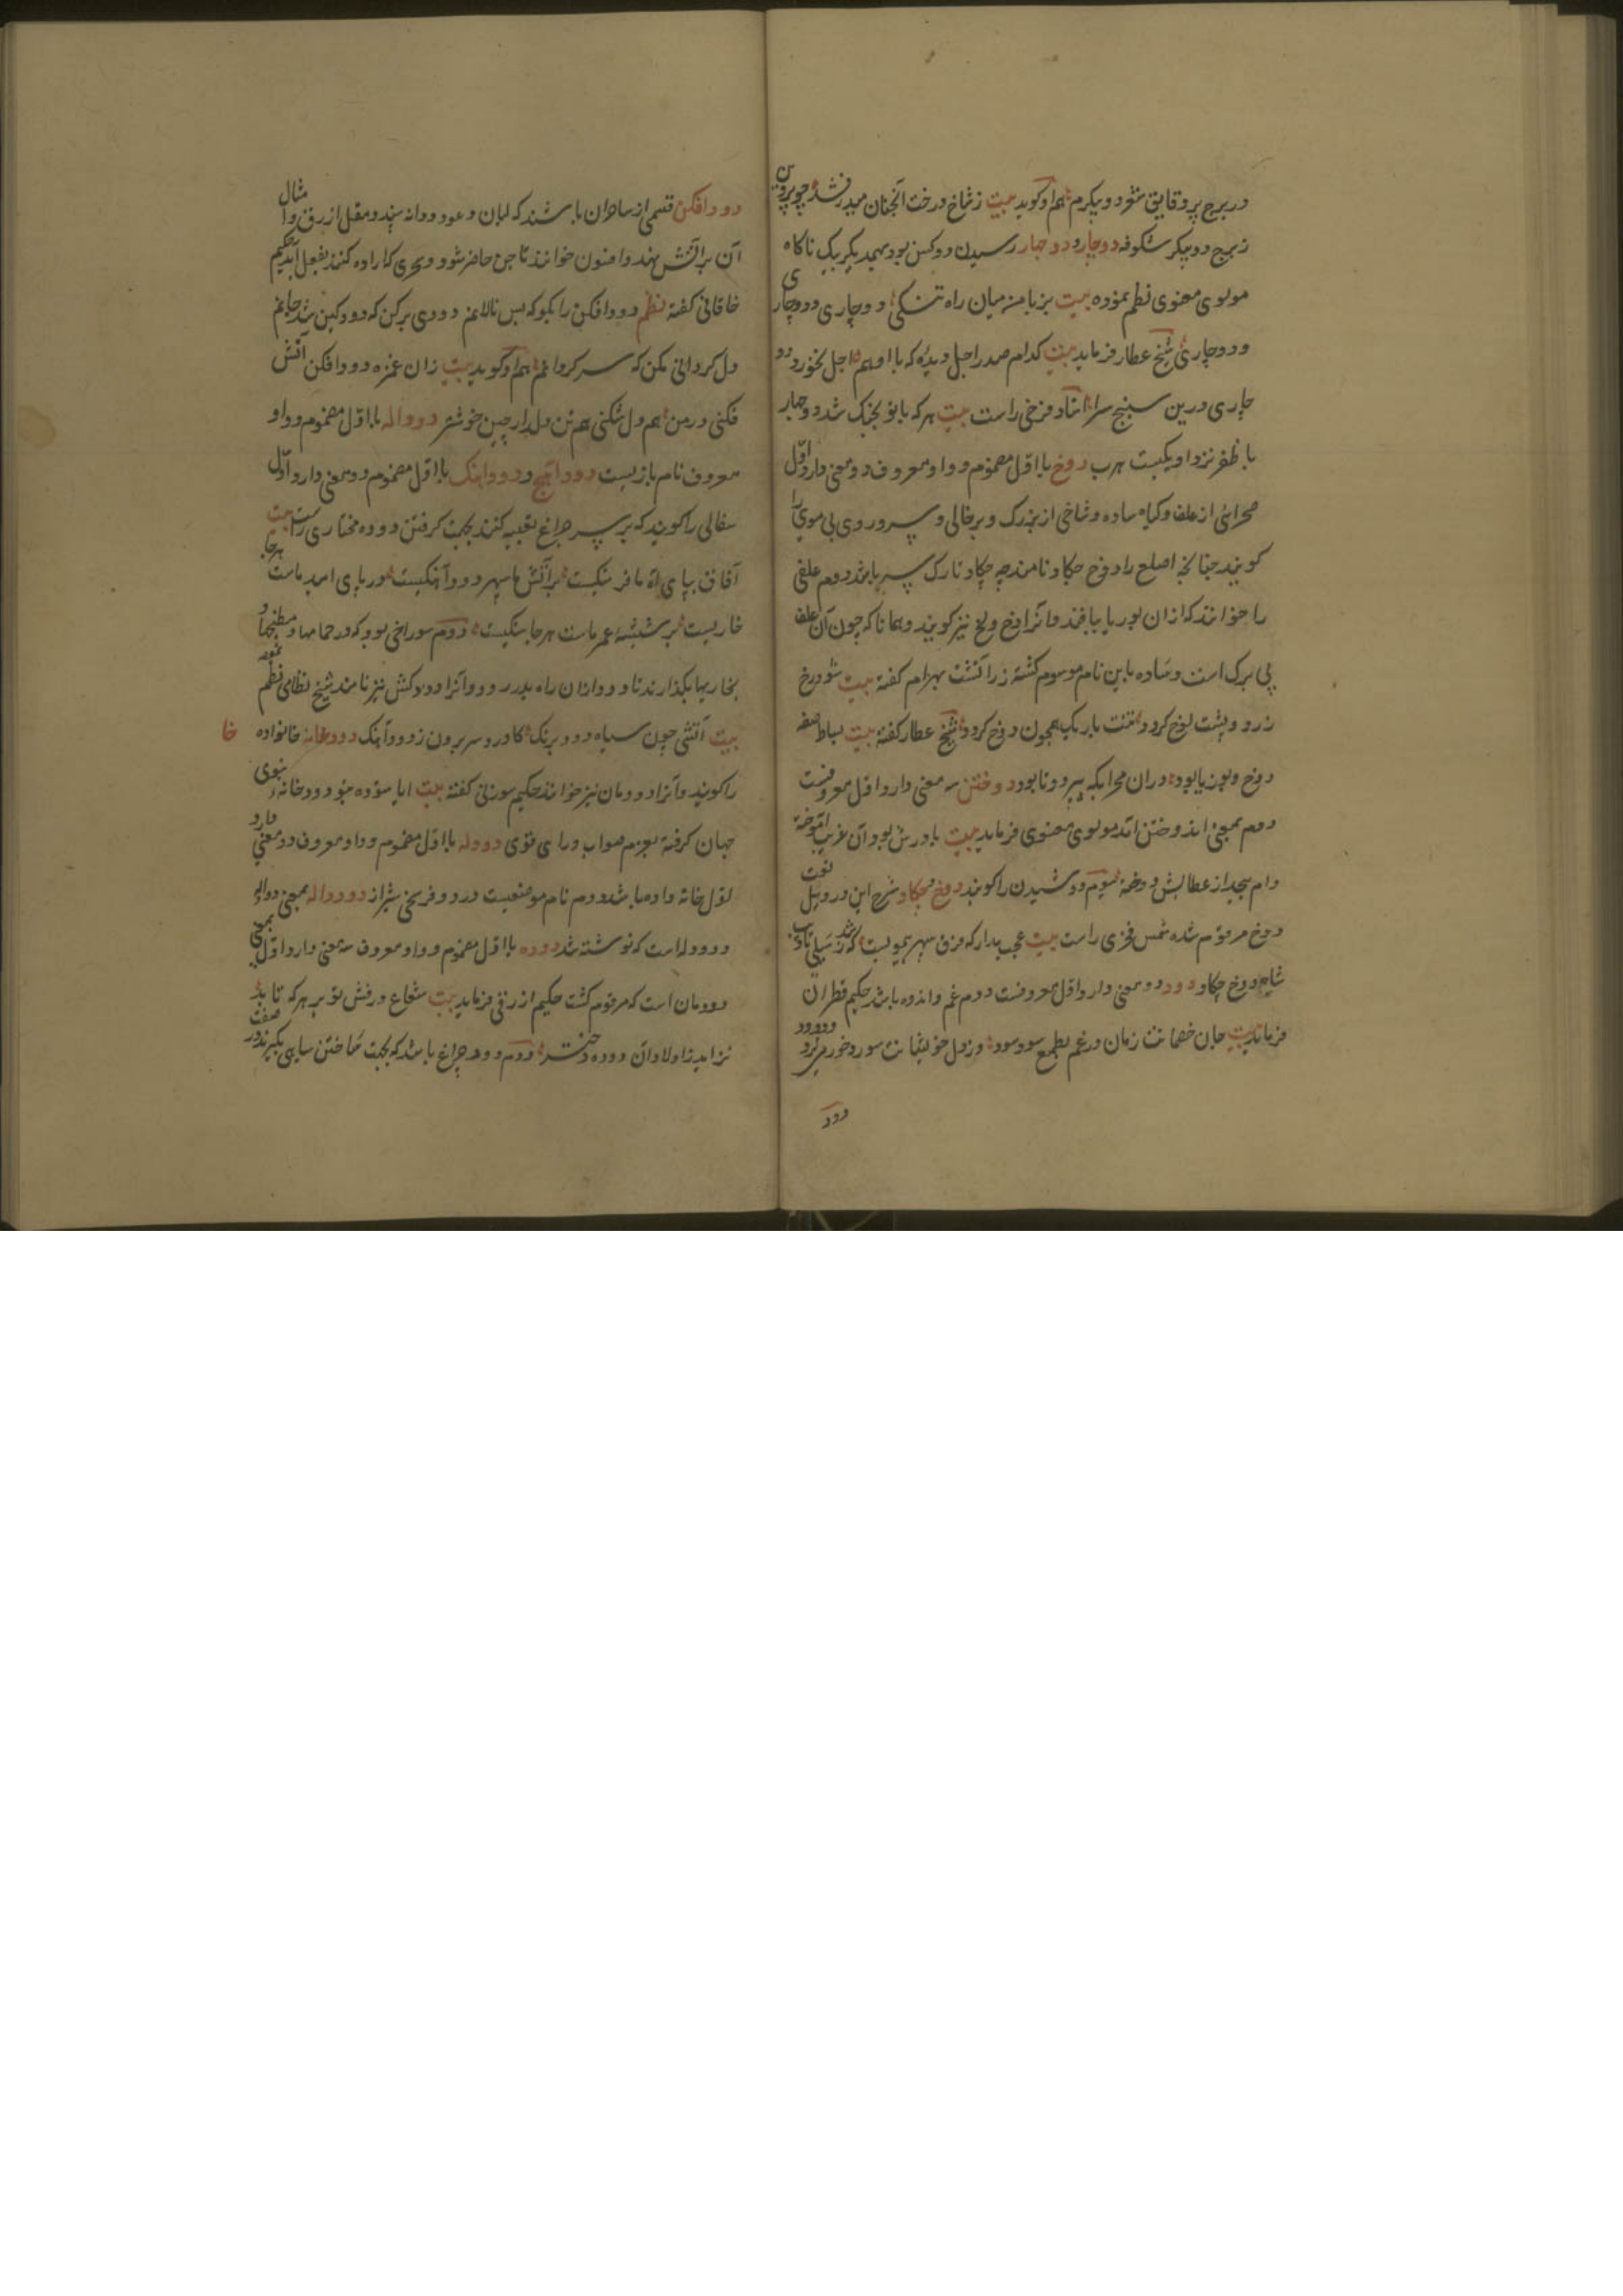 در برج پر وقایق شود و پیکرم هم او کوید بیت ز شاخ درخت آنچنان میدرفشد چو پروین
ز برج دو پیکر شکوفه دوچار و دو چهار رسیدن دو کس بود بهمدیکر یک ناکاه
مولوی معنوی نظم نموده بیت بزیا منه میان راه تنکی دو چاری دو دوچاری
و دوچاری شیخ عطار فرماید بیت کدام صدر اجل دیده که با او هم اجل نخورد دو
چاری درین سپنج سرا استاد فرخی راست بیت هر که با تو بجنک شد دو چهار
با ظفر نزد او یکیست هرب دوخ با اول مضموم و واو معروف دو معنی دارد اول
صحرائی از علف و کیاه ساده و شاخی از بزرک و بر خالی و سر و روی بی موی را
کویند چنانکه اصلع را دوخ چکاد نامند چه چکاد تارک سر باشد دوم علفی
را خوانند که از ان بوریا بافند و آنرا وخ ولخ نیز کویند و همانا که چون آن علف
بی برک است و ساده باین نام موسوم کشته زراتشت بهرام کفته بیت شود رخ
زرد و پشت کوخ کردد تنت باریک همچون دوخ کردد شیخ عطار کفته بیت بساط صفه
دوخ و بوریا بود دران محرابکه پیر دوتا بود دوختن سه معنی دارد اول معروفست
دوم بمعنی اندوختن آمده مولوی معنوی فرماید بیت بادرش بود آن غریب آموخته
وام بیحد از عطایش دوخته سیوم دوشیدن را کویند دوخ چکاد شرح این در ذیل لغت
دوخ مرقوم شده شمس فخری راست بیت عجب مدار که فرق سپهر بیمویست که شد ز سیلی تادیب
شاه دوخ چکاد دود دو معنی دارد اول معروفست دوم غم و اندوه باشد حکیم قطران
فرماید بیت جان خصمانت زمان در غم بطمع سود سود وز دل خویشانت سور و خورمی بزدود دود
دود
دود افکن قسمی از ساحران باشند که لبان و عود و دانه سپند و مقل ازرق و امثال
آن بر آتش نهند و افسون خوانند تا جن حاضر شود و بهری کار اراده کنند بفعل آید حکیم
خاقانی کفته نظم دود افکن را بکو که بس نالانم دودی برکن که دود کین شد جانم
دل کردانی مکن که سر کردانم هم او کوید بیت زان غمزه دود افکن آتش
فکنی در من هم دل شکنی هم تن دلدار چنین خوشتر دوداله با اول مضموم و واو
معروف نام بازیست دودآهنج و دودآهنک با اول مضموم دو معنی دارد اول
سفالی را کویند که بر سر چراغ تعبیه کنند بجهت کرفتن دوده مختاری راست بیت
آفاق بپای آه ما فرسنکیست بر آتش ما سپهر دودآهنکیست در پای امید ماست هر جا
خاریست بر شیشه عمر ماست هر جا سنکیست دوم سوراخی بود که در حمامها و مطبخها و
بخاریها بکذارند تا دود از ان راه بدر رود و آنرا دودکش نیز نامند شیخ نظامی نظم نموده
بیت آتشی چون سیاه دود برنک کاورد سر برون ز دودآهنک دودخانه خانواده خا
را کویند و آنرا دودمان نیز خوانند حکیم سوزنی کفته بیت ایا ستوده بتو دودخانه نبوی
جهان کرفته بعزم صواب و رای قوی دودله با اول مضموم و واو معروف دو معنی دارد
اول خانواده باشد دوم نام موضعیست در دو فرسخی شیراز دودواله بمعنی دواله
و دودله است که نوشته شد دوده با اول مضموم و واو معروف سه معنی دارد اول بمعنی
دودمان است که مرقوم کشت حکیم ازرقی فرماید بیت شعاع درفش تو بر هر که تابد
نزاید ز اولاد آن دوده دختر دوم دوده چراغ باشد که بجهت ساختن سیاهی بکیرند در صفت